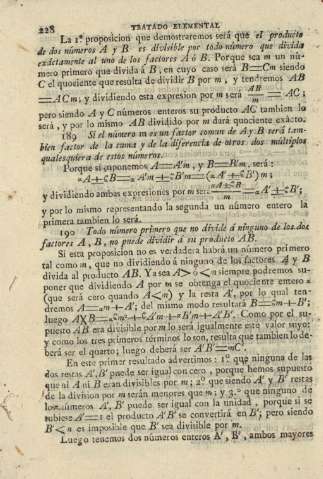 228 TRATADO ELEMENTAL
La 1.ª proposicion que demostraremos será que el producto
de dos números A y B es divisible por todo número que divida
exâctamente al uno de los factores A ó B. Porque sea m un nú-
mero primero que divida á B, en cuyo caso será B=Cm siendo
C el quociente que resulta de dividir B por m, y tendremos AB
=ACm; y dividiendo esta expresion por m será AB/m = AC;
pero siendo A y C números enteros su producto AC tambien lo
será, y por lo mismo AB dividido por m dará quociente exâcto.
189 Si el número m es un factor comun de A y B será tam-
bien factor de la suma y de la diferencia de otros dos múltiplos
qualesquiera de estos números.
Porque si suponemos A=A'm, y B=B'm, será:
y dividiendo ambas expresiones por m será
y por lo mismo representando la segunda un número entero la
primera tambien lo será.
190 Todo número primero que no divide á ninguno de los dos
factores A, B, no puede dividir á su producto AB.
Si esta proposicion no es verdadera habrá un número primero
tal como m, que no dividiendo á ninguno de los factores A y B
divida al producto AB. Ya sea A> ó < m siempre podremos su-
poner que dividiendo A por m se obtenga el quociente entero
(que será cero quando A<m) y la resta A', por lo qual ten-
dremos del mismo modo resultará
luego Como por el su-
puesto AB era divisible por m lo será igualmente este valor suyo;
y como los tres primeros términos lo son, resulta que tambien lo de-
berá ser el quarto; luego deberá ser A'B'=mC'.
En este primer resultado advertimos: 1.º que ninguna de las
dos restas A', B' puede ser igual con cero, porque hemos supuesto
que ni A ni B eran divisibles por m; 2.º que siendo A' y B' restas
de la division por m serán menores que m; y 3.º que ninguno de
los números A', B' puede ser igual con la unidad, porque si se
tubiese A'=1 el producto A'B' se convertirá en B'; pero siendo
B'<m es imposible que B' sea divisible por m.
Luego tenemos dos números enteros A', B', ambos mayores